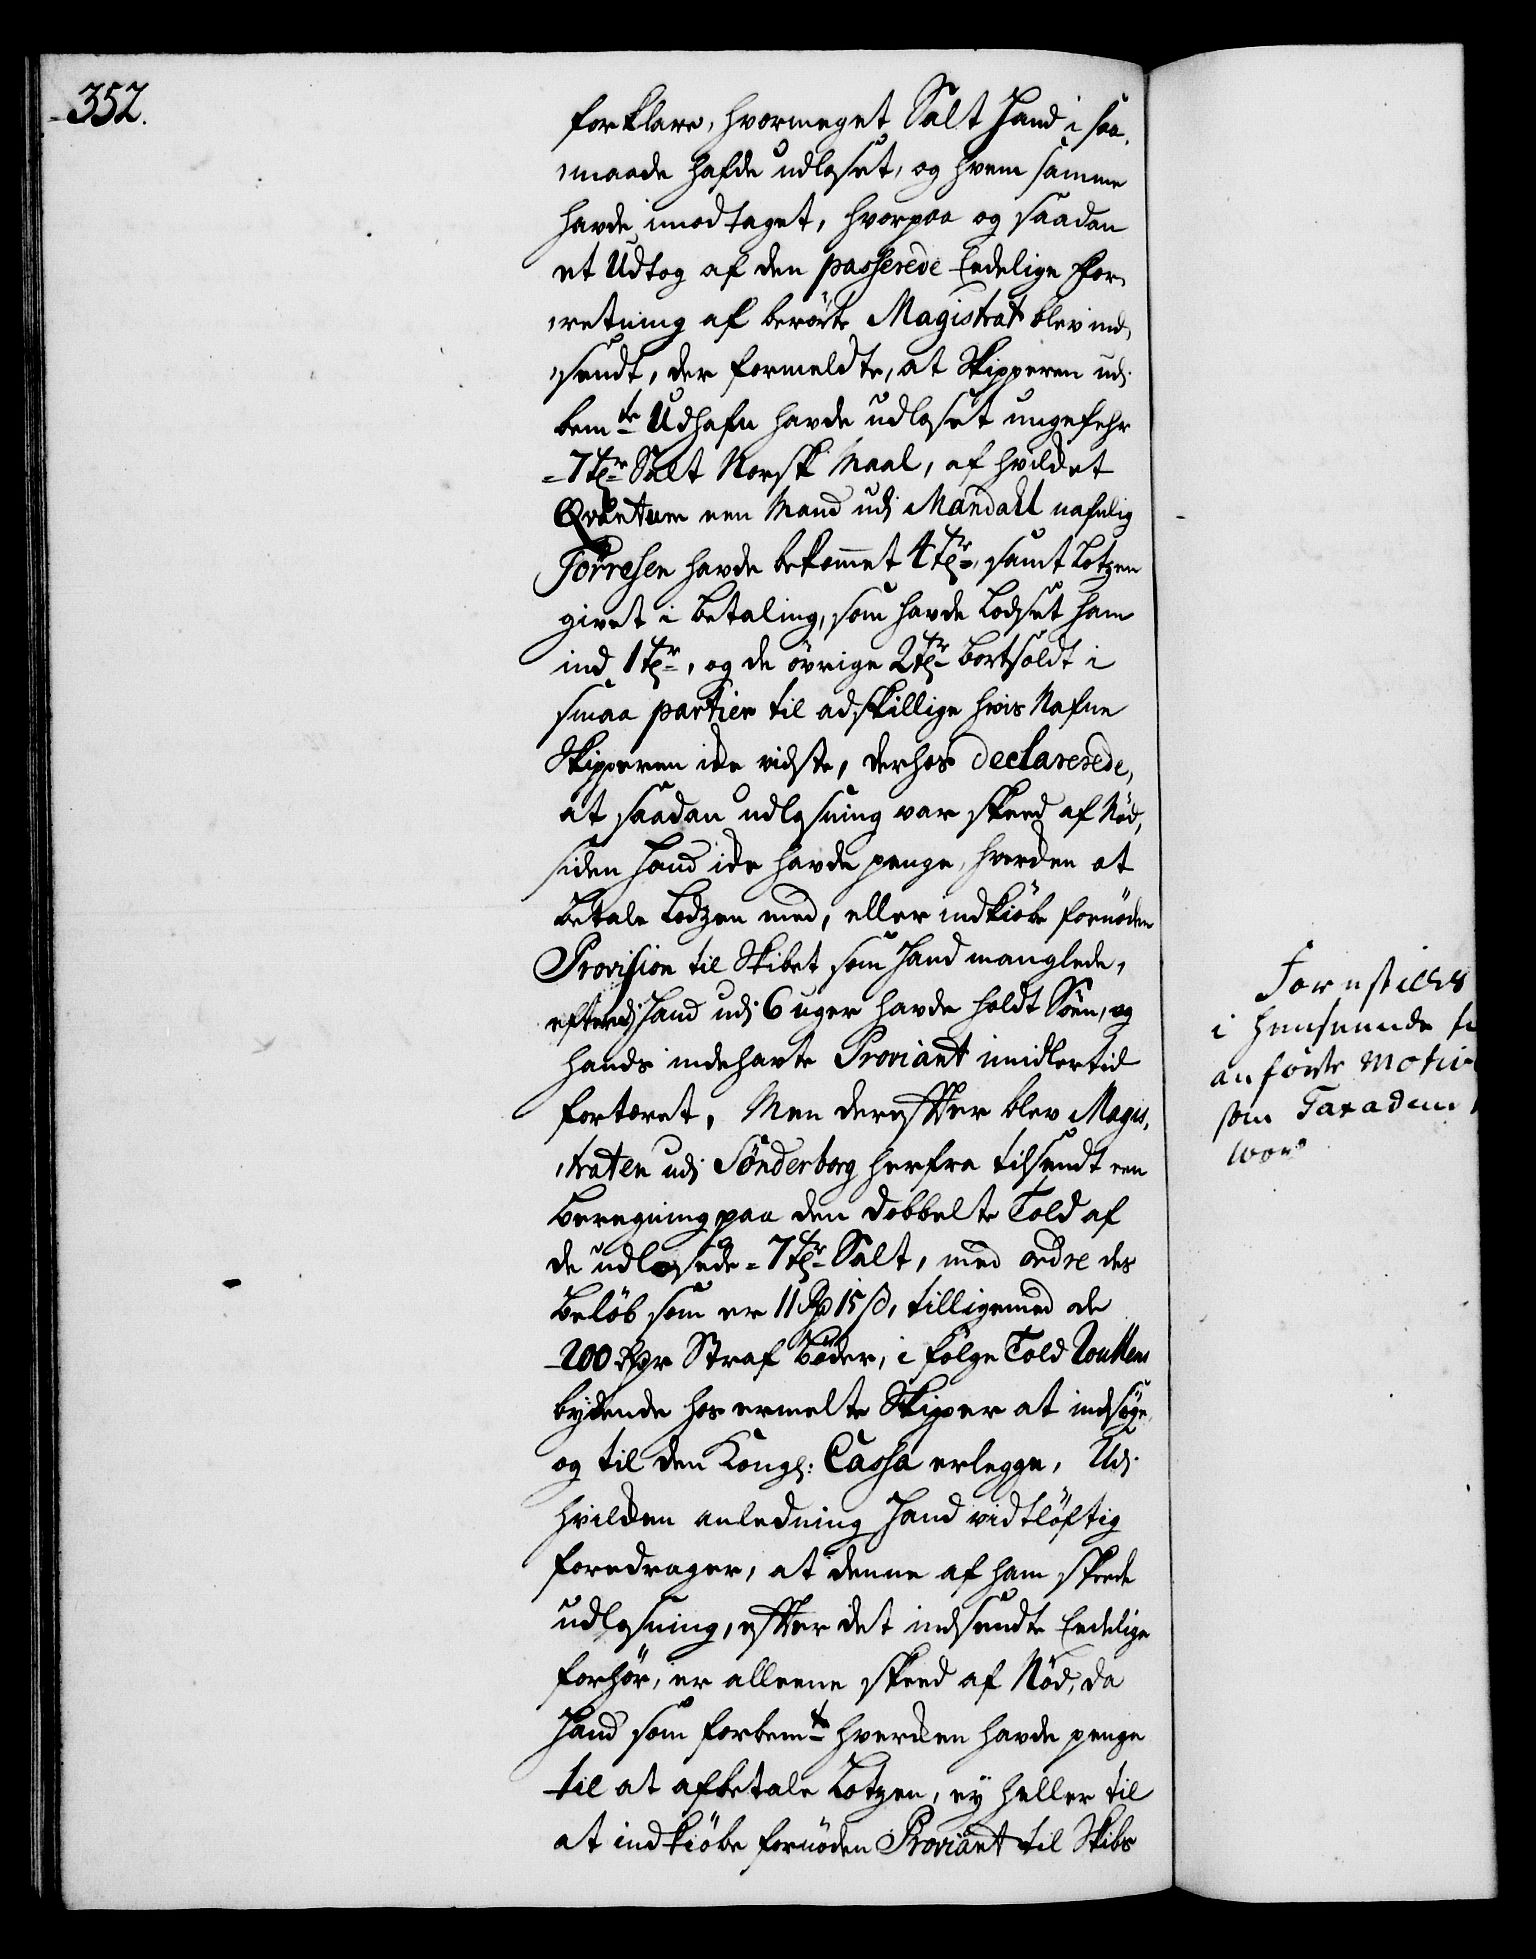 352.
forklare, hvormeget Salt Hand i saa,
,maade hafde udloset, og hvem samme
havde imodtaget, hvorpaa og saadan
et Udtog af den passerede Eedelige For,
,retning af berørte Magistrat blev ind,
,sendt, der formeldte, at Skipperen udi
bemte Udhafn havde udloset ungefehr
=7 tr= Salt Norsk Maal, af hvilcket
Qvantum een Mand udi Mandall nafnlig
Törresen havde bekommet 4 tr=, samt Lotzen
givet i betaling, som havde Lodset ham
ind 1 tr=, og de övrige 2 tr= bortsoldt i
smaa partier til adskillige hvis Nafne
Skipperen icke vidste, derhos declarerede,
at saadan udlosning var skeed af Nöd,
siden Hand icke havde penge, hverken at
betale Lodzen med, eller indkiöbe fornöden
Provision til Skibet som Hand manglede,
efterdi Hand udi 6 uger havde holdt Söen, og
hands indehavte Proviant imidlertid
fortæret, Men derefter blev Magis,
,traten udi Sönderborg herfra tilsendt een
beregning paa den dobbelte Told af
de udlosede =7 tr= Salt, med ordre des
Belöb som er 11 Rd 15 s, tilligemed de
200 Rdr Straf Böder, i fölge Told Roullens
bydende hos ermelte Skipper at indsöge,
og til den Kongl: Cassa erlegge, Udi
hvilcken anledning Hand vidtlöftig
foredrager, at denne af ham skeede
udlosning, efter det indsendte Eedelige
forhör, er alleene skeed af Nöd, da
Hand som forbemte hvercken havde penge
til at afbetale Lotzen, ey heller til
at indkiöbe fornöden Proviant til Skibs
i henseende
anförte
som